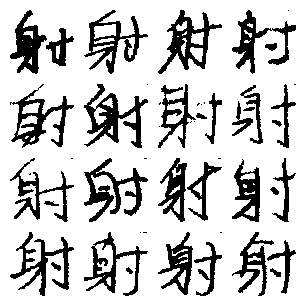 射射射射
射射射射
射射射射
射射射射